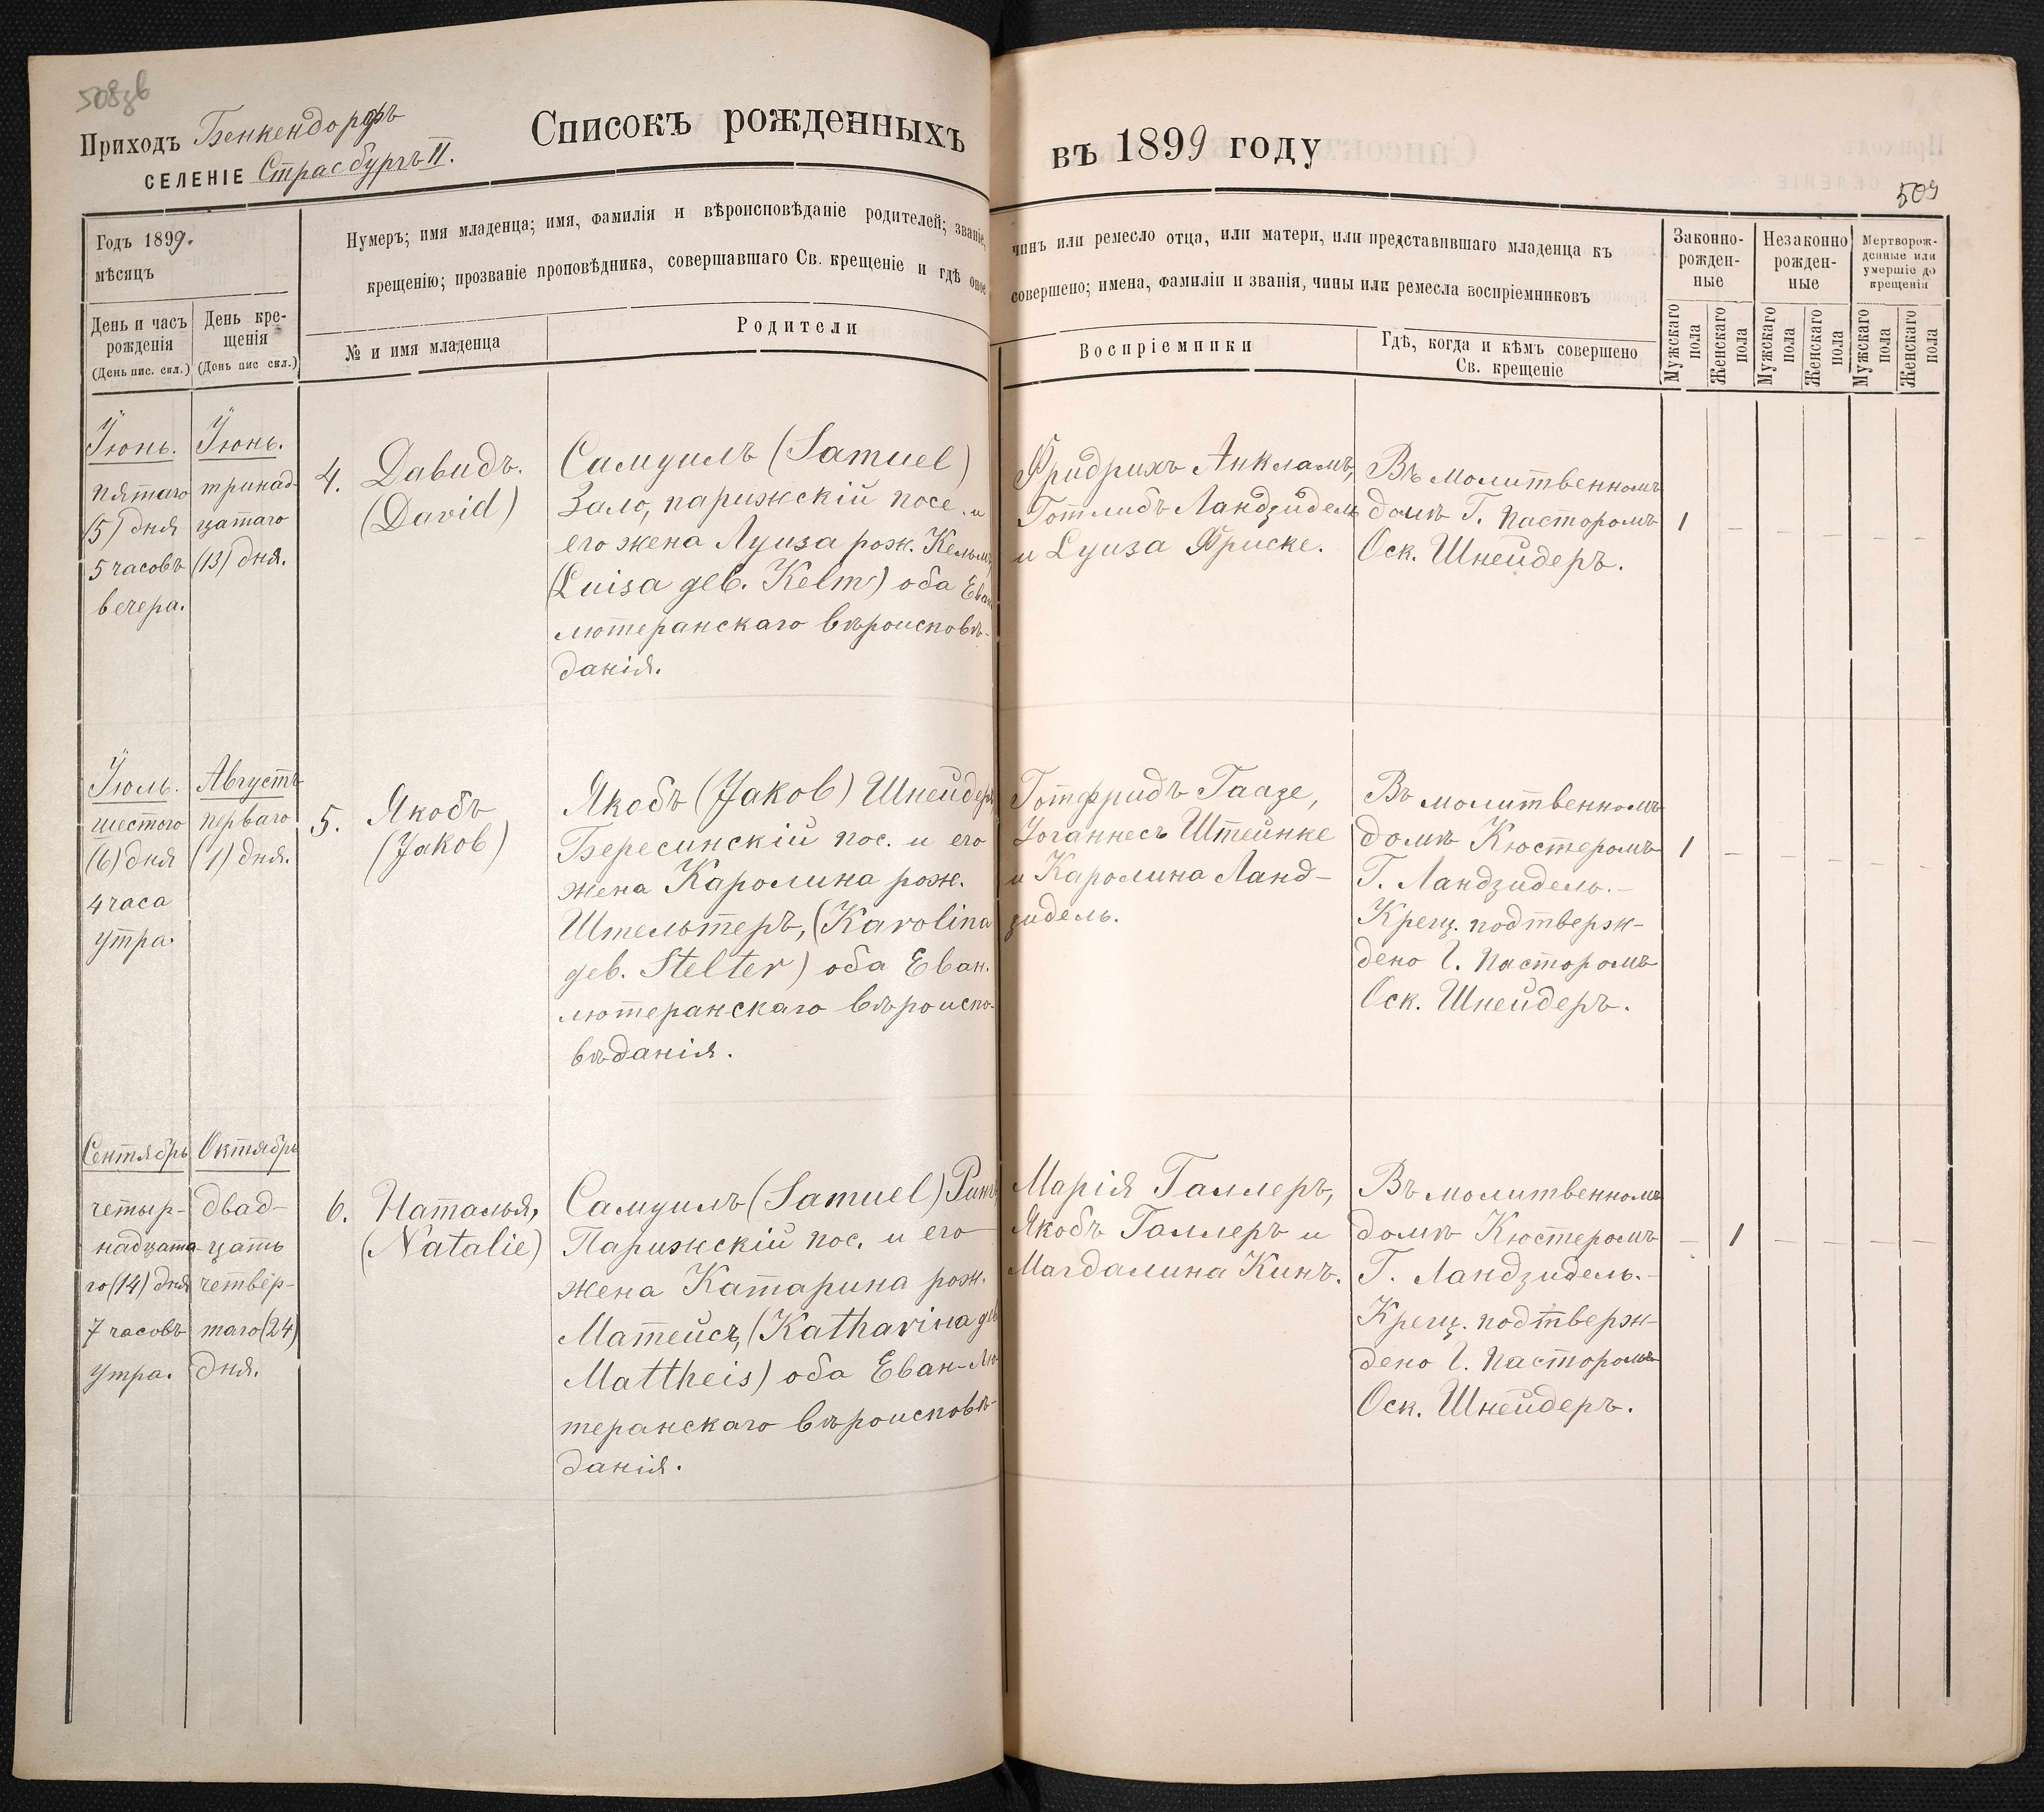 508зв
Приходъ Бенкендорфъ
СЕЛЕНІЕ Страсбургъ II.
Списокъ рожденныхъ
въ 1899 году
509
Годъ 1899.
мѣсяцъ
День и часъ рожденія
(День пис. скл.)
День кре-
щенія
(День пис скл.)
Нумеръ; имя младенца; имя, фамилія и вѣроисповѣданіе родителей; званіе,
крещенію; прозваніе проповѣдника, совершавшаго Св. крещеніе и гдѣ оное
№ и имя младенца
Родители
чинъ или ремесло отца, или матери, или представившаго младенца къ
совершено; имена, фамиліи и званія, чины или ремесла воспріемниковъ
Воспріемники
Гдѣ, когда и кѣмъ совершено
Св. крещеніе
Законно-
рожден-
ные
Незаконно
рожден-
ные
Мертворож-
денные или
умершіе до
крещенія
Мужскаго пола
Женскаго пола
Мужскаго пола
Женскаго пола
Мужскаго пола
Женскаго пола
Їюнь.
пятаго
(5) дня
5 часовъ
вечера.
Їюнь.
тринад-
цатаго
(13) дня.
4. Давидъ.
(David)
Самуилъ (Samuel)
Зало, парижскій посе. и
его жена Луиза рож. Кельмъ
(Luisa geb. Kelm) оба Еван
лютеранскаго вѣроисповѣ-
данія.
Фридрихъ Анкламъ,
Готлибъ Ландзидель
и Lуиза Фриске.
Въ молитвенномъ
домѣ Г. Пасторомъ
Оск. Шнейдеръ.
1 – – – – –
Їюль.
шестого
(6) дня
4 часа
утра.
Августъ
перваго
(1) дня.
5. Якобъ
(Jakob)
Якобъ (Jakob) Шнейдеръ
Бересинскій пос. и его
жена Каролина рож.
Штельтеръ, (Karolina
geb. Stelter) оба Еван.
лютеранскаго вѣроиспо-
вѣданія.
Готфридъ Гаазе,
Іоганнесъ Штейнке
и Каролина Ланд-
зидель.
Въ молитвенномъ
домѣ Кюстеромъ
Г. Ландзидель.–
Крещ. подтверж-
дено Г. Пасторомъ
Оск. Шнейдеръ.
1 – – – – –
Сентябрь
четыр-
надцата-
го (14) дня
7 часовъ
утра.
Октябрь
двад-
цать
четвер-
таго (24)
дня.
6. Наталья,
(Natalie)
Самуилъ (Samuel)
Парижскій пос. и его
жена Катарина рож.
Матейсъ, (Katharina geb
Mattheis) оба Еван-Лю-
теранскаго вѣроисповѣ-
данія.
Марія Галлеръ,
Якобъ Галлеръ и
Магдалина Кинъ.
Въ молитвенномъ
домѣ Кюстеромъ
Г. Ландзидель.–
Крещ. подтверж-
дено Г. Пасторомъ
Оск. Шнейдеръ.
– 1 – – – –